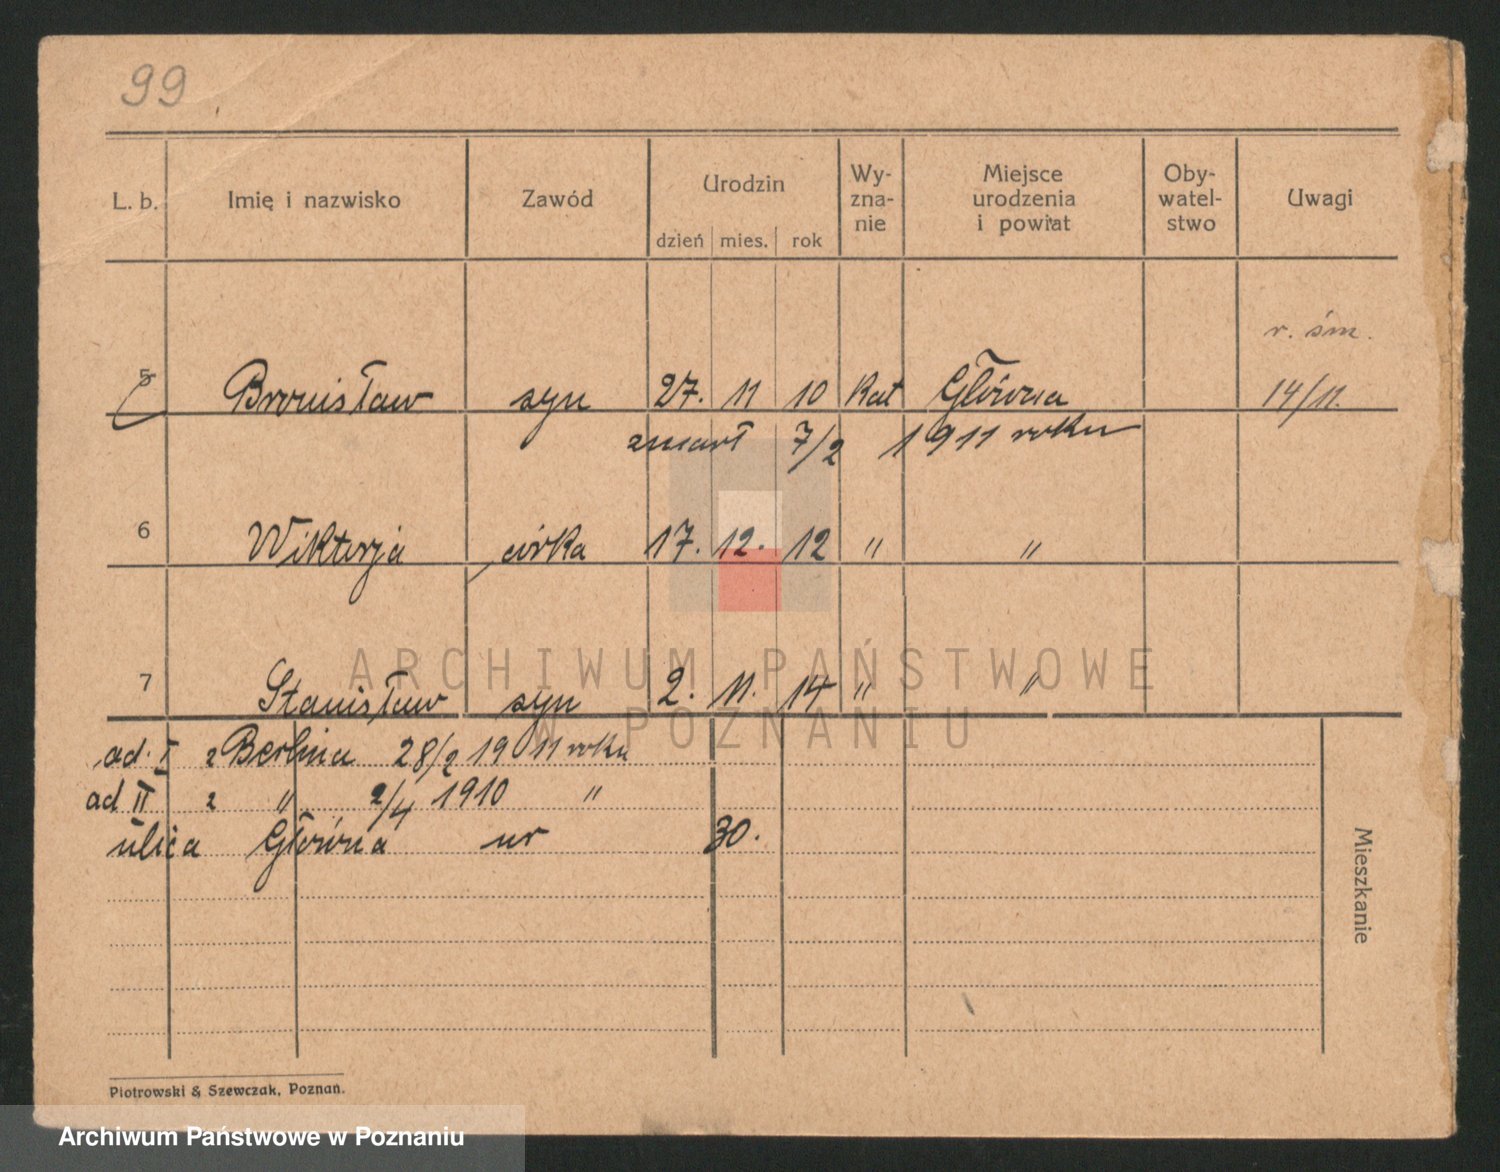 99
L. b. Imię i nazwisko Zawód Urodzin dzień mies. rok Wy-zna-nie Miejsce urodzenia i powiat Oby-watel-stwo Uwagi
r. śm.
5 Bronisław syn 27. 11 10 kat Główna 14/11.
zmarł 7/2 1911 roku
6 Wiktorja córka 17. 12. 12 " "
7 Stanisław syn 2. 11. 14 " "
ARCHIWUM PAŃSTWOWE
W POZNANIU
ad. I z Berlina 28/2 1911 roku
ad II z " 2/4 1910 "
ulica Główna nr 30.
Mieszkanie
Piotrowski & Szewczak, Poznań.
Archiwum Państwowe w Poznaniu